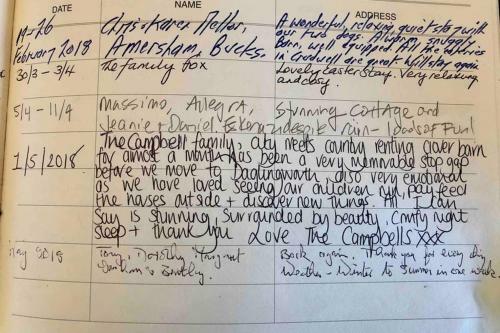 DATE NAME ADDRESS
19-26 February 2018
Chris + Karen Mellor,
Amersham, Bucks.
A wonderful, relaxing quiet stay with
our two dogs. Allways snuggly
Barn, well equipped. All the amenities
in Cradwell are great. Will stay again
30/3 - 3/4 The family Fox Lovely Easter stay. Very relaxing
and cosy.
5/4 - 11/4 Massimo, Allegra, Stunning Cottage and
Jeanie + Daniel. despite rain - loads of Fun!
1/5/2018 The Campbell family, city meets country renting clover barn
for almost a month has been a very memorable stop gap
before we move to Daglingworth, also very emotional
as we have loved seeing our children run, play, feed
the horses outside + discover new things. All I can
say is stunning. Surrounded by beauty. Comfy night
sleep + thank you Love The Campbells xxx
May 2018 Tony, Dorothy, Margaret Back again. Thank you for every day
Weather - Winter to Summer in one week.